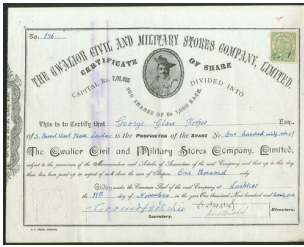 No. 196
THE GWALIOR CIVIL AND MILITARY STORES COMPANY, LIMITED.
CERTIFICATE OF SHARE
CAPITAL Rs. 7,00,000 DIVIDED INTO
700 SHARES OF Rs 1,000 EACH.
This is to Certify that George Glass Esq.
of London is the PROPRIETOR of the SHARE No. One hundred
The Gwalior Civil and Military Stores Company, Limited,
subject to the provisions of the Memorandum and Articles of Association of the said Company and that up to this day
there has been paid up in respect of such share the sum of Rupees One thousand only
Given under the Common Seal of the said Company at Lashkar
the 11th day of November in the year One Thousand Nine hundred and
Secretary.
Directors.